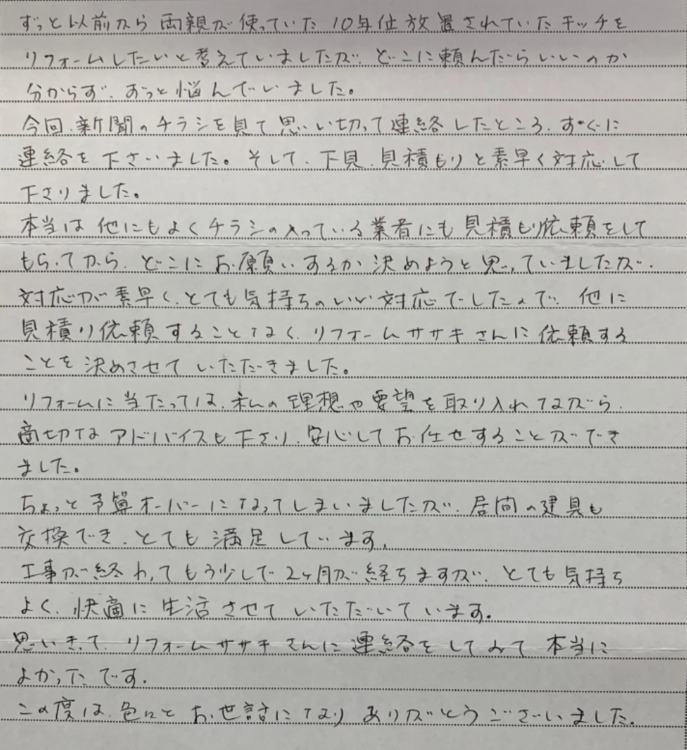 ずっと以前から両親が使っていた10年位放置されていたキッチを
リフォームしたいと考えていましたが、どこに頼んだらいいのか
分からず、ずっと悩んでいました。
今回、新聞のチラシを見て思い切って連絡したところ、すぐに
連絡を下さいました。そして、下見、見積もりと素早く対応して
下さりました。
本当は他にもよくチラシの入っている業者にも見積もり依頼をして
もらってから、どこにお願いするか決めようと思っていましたが、
対応が素早く、とても気持ちのいい対応でしたので、他に
見積り依頼することなく、リフォームササキさんに依頼する
ことを決めさせていただきました。
リフォームに当たっては、私の理想や要望を取り入れながら、
適切なアドバイスも下さり、安心してお任せすることができ
ました。
ちょっと予算オーバーになってしまいましたが、居間の建具も
交換でき、とても満足しています。
工事が終わってもう少しで2ヶ月が経ちますが、とても気持ち
よく、快適に生活させていただいています。
思いきって、リフォームササキさんに連絡をしてみて本当に
よかったです。
この度は、色々とお世話になりありがとうございました。